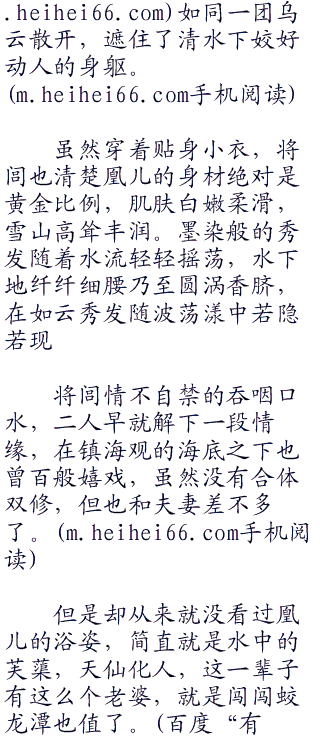 .heihei66.com)如同一团乌
云散开，遮住了清水下姣好
动人的身躯。
(m.heihei66.com手机阅读)
虽然穿着贴身小衣，将
闾也清楚凰儿的身材绝对是
黄金比例，肌肤白嫩柔滑，
雪山高耸丰润。墨染般的秀
发随着水流轻轻摇荡，水下
地纤纤细腰乃至圆涡香脐，
在如云秀发随波荡漾中若隐
若现
将闾情不自禁的吞咽口
水，二人早就解下一段情
缘，在镇海观的海底之下也
曾百般嬉戏，虽然没有合体
双修，但也和夫妻差不多
了。(m.heihei66.com手机阅
读)
但是却从来就没看过凰
儿的浴姿，简直就是水中的
芙蕖，天仙化人，这一辈子
有这么个老婆，就是闯闯蛟
龙潭也值了。(百度“有